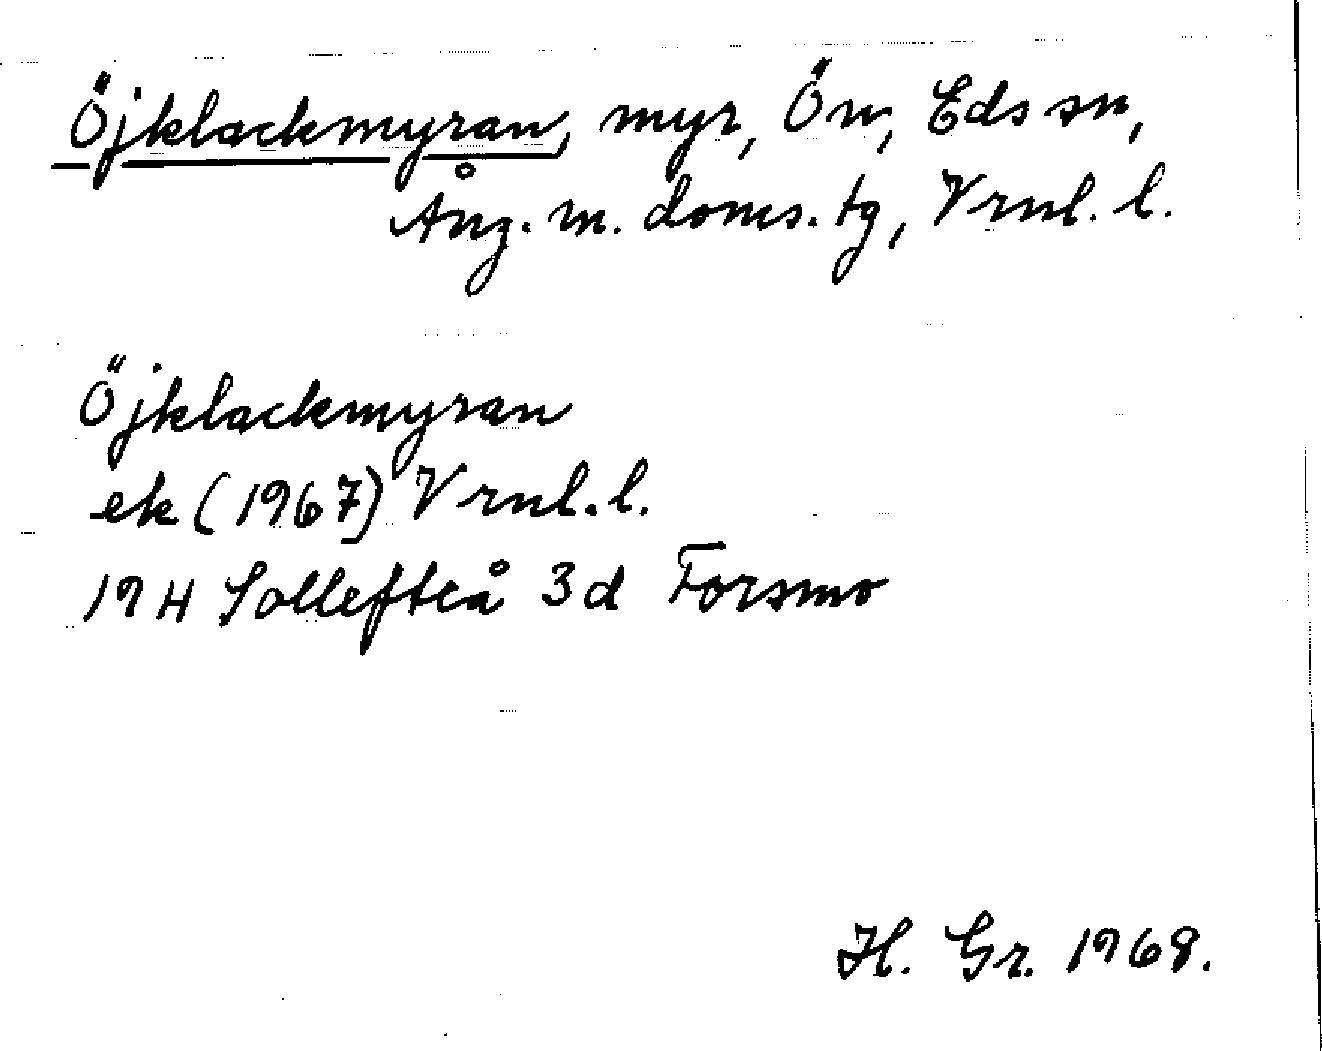 Öjklackmyran, myr, Ön, Eds sn,
Ång. m. doms. tg, Vrnl. l.
Öjklackmyran
ek (1967) Vrnl. l.
19 H Sollefteå 3d Forsmo
H. Gr. 1968.